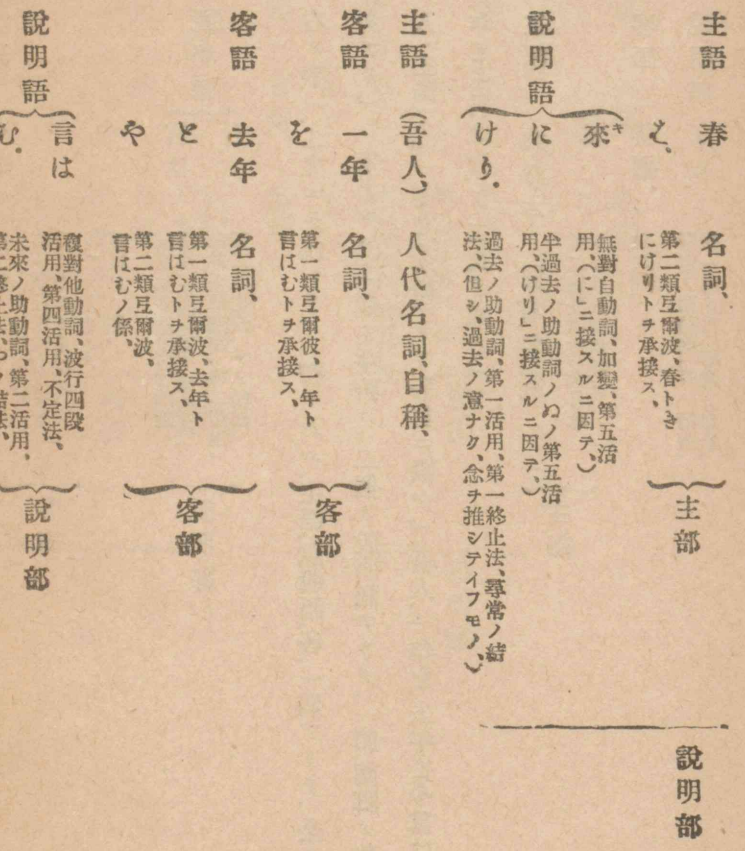 主語 春 名詞、
は、 第二類弖爾波、春トき
にけりトヲ承接ス、
主部
說明語 來キ 無對自動詞、加變、第五活
用、(に」ニ接スルニ因テ、)
に 半過去ノ助動詞ノぬノ第五活
用、(けり」ニ接スルニ因テ、)
けり. 過去ノ助動詞、第一活用、第一終止法、尋常ノ結
法、(但シ、過去ノ意ナク、念ヲ推シテイフモノ、)
說明部
主語 (吾人、) 人代名詞、自稱、
客語 一年 名詞、
を 第一類弖爾波、一年ト
言はむトヲ承接ス、
客部
客語 去年 名詞、
と 第一類弖爾波、去年ト
言はむトヲ承接ス、
や 第二類弖爾波、
言はむノ係、
客部
說明語 言は 複對他動詞、波行四段
活用、第四活用、不定法、
む. 未來ノ助動詞、第二活用、
說明部